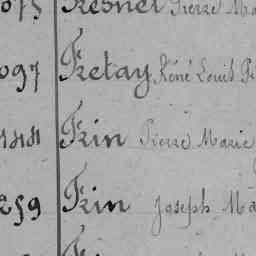 Kesnel Pierre Ma
097 Ketay René Louis Pi
Kin Pierre Marie
259 Kin Joseph Ma